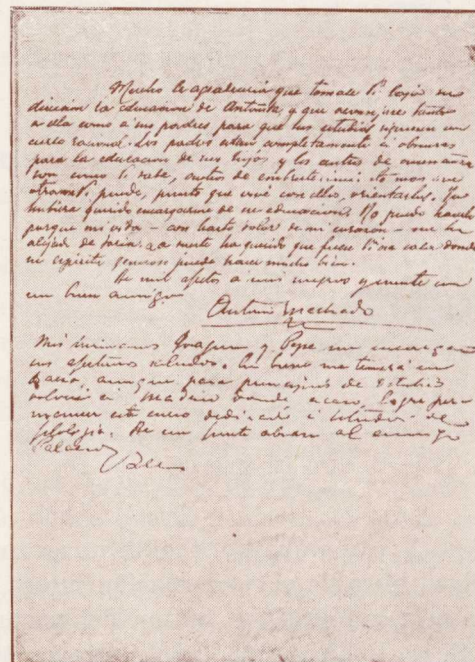 Mucho le agradeceria que tomase Vd. bajo su
direccion la educacion de Antonio, y que aconsejase tanto
a ella como a sus padres para que sus estudios siguiesen un
curso racional. Los padres estan completamente a obscuras
para la educacion de sus hijos, y los centros de enseñanza
son como Vd. sabe, centros de
Vd. puede, puesto que vive con ellos, orientarlos. Yo
hubiera querido encargarme de su educacion. No puedo hacerlo
porque mi vida — con harto dolor de mi corazon — me ha
alejado de Soria. La suerte ha querido que fuese Vd. a esa casa donde
su espiritu generoso puede hacer mucho bien.
De mil afectos a
un buen amigo
Antonio Machado
Mis hermanos Joaquin y Pepe me encargan
sus afectuosos saludos. En breve me tendrá en
Baeza, aunque para principios de Estudios
volveré a Madrid donde acaso logre per-
manecer este curso dedicado a estudios de
filologia. De un fuerte abrazo al amigo
Palacio
Vale